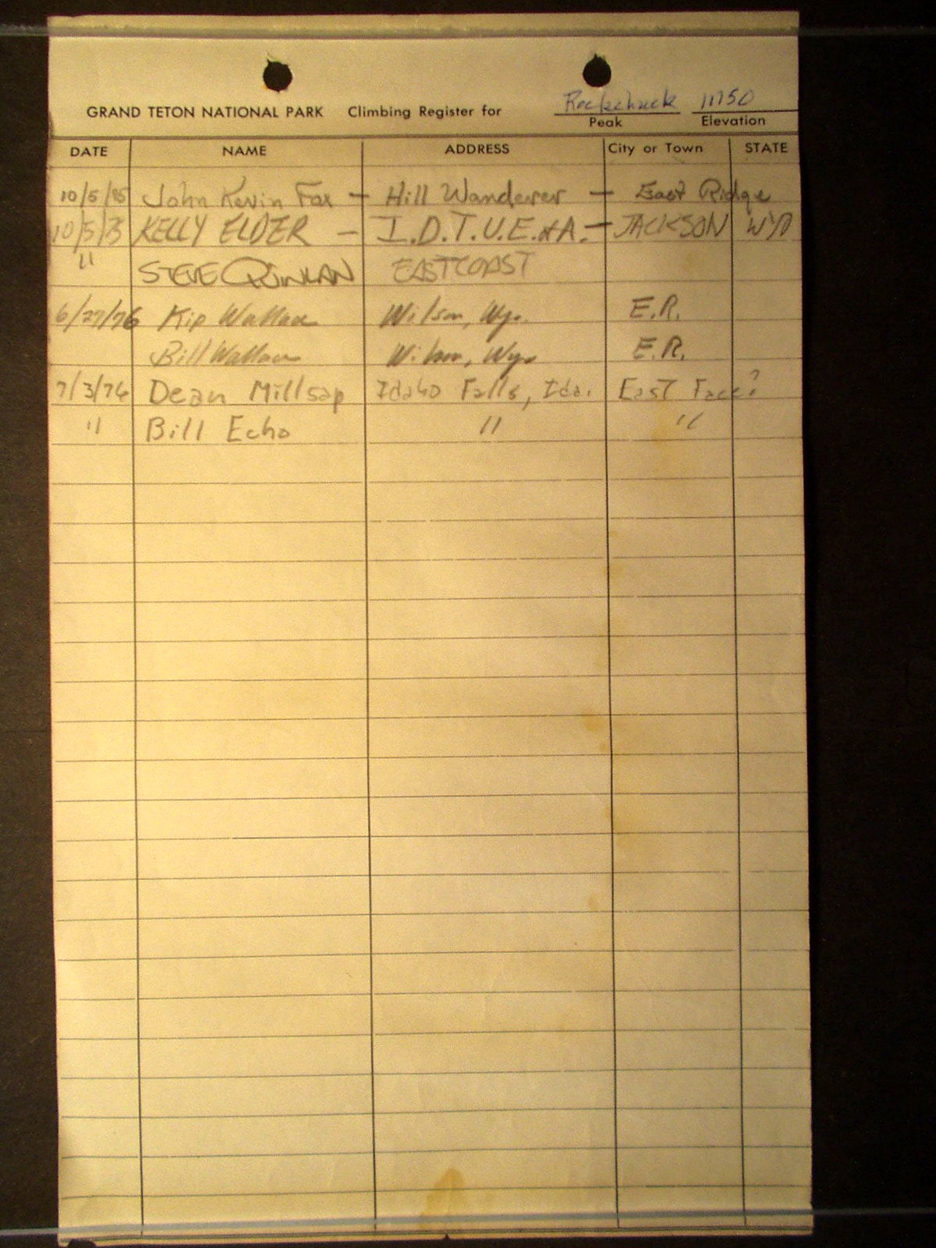 GRAND TETON NATIONAL PARK Climbing Register for Rockchuck 11150
Peak Elevation
DATE NAME ADDRESS City or Town STATE
10/5/85 John Kevin Fox — Hill Wanderer — East Ridge
10/5/ KELLY ELDER — I.D.T.U.E.&A. — JACKSON WYO
" STEVE QUINLAN EASTCOAST
6/27/76 Kip Wallace Wilson, Wyo. E.R.
Bill Wallace Wilson, Wyo E.R.
7/3/76 Dean Millsap Idaho Falls, Ida. East Face?
" Bill Echo " "